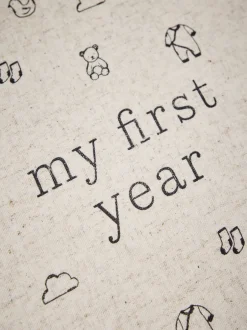 my first
year